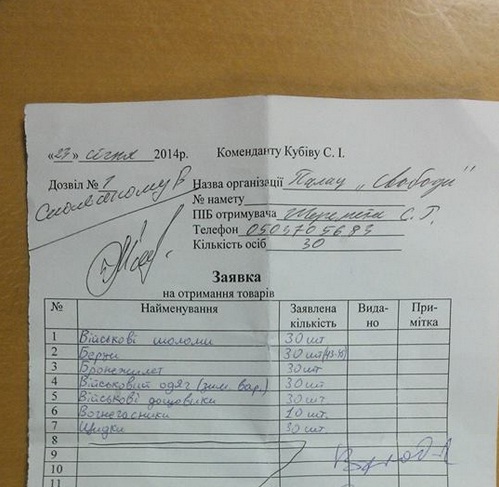 «23» січня 2014р. Коменданту Кубіву С. І.
Дозвіл № 1 Назва організації Палац „Свободи"
№ намету
ПІБ отримувача С. Г.
Телефон 0504705683
Кількість осіб 30
Заявка
на отримання товарів
№ Найменування Заявлена кількість Вида-но При-мітка
1 Військові шоломи 30 шт
2 Берци 30 шт (43-45)
3 Бронежилет 30 шт
4 Військовий одяг (зим. вар.) 30 шт
5 Військові дощовики 30 шт
6 Вогнегасники 10 шт.
7 Щидки 30 шт.
8
9
10
11